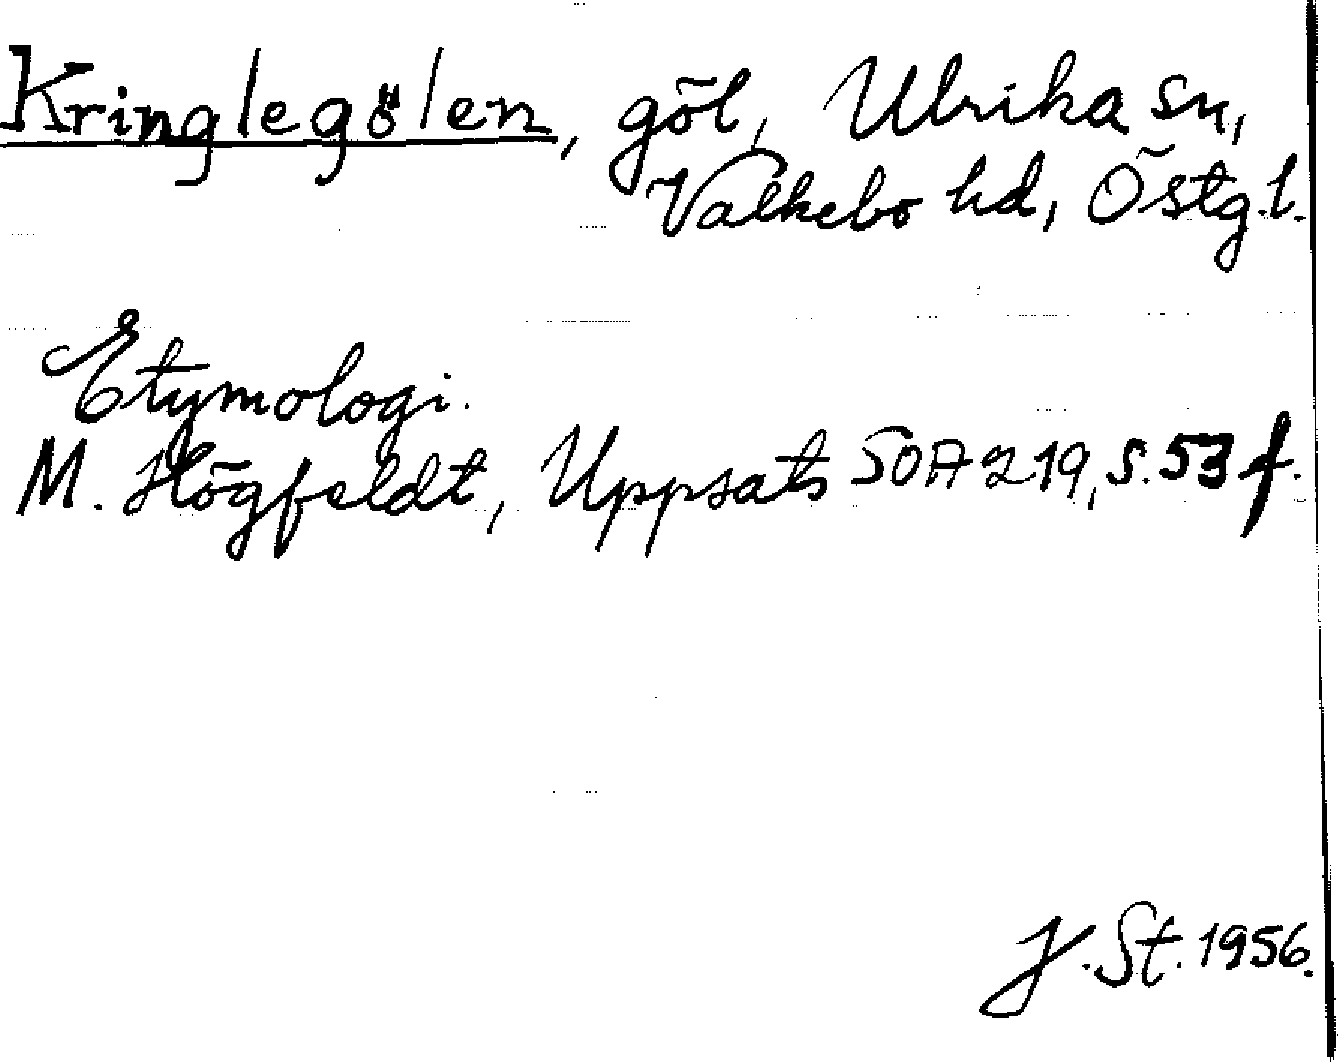 Kringlegölen, göl, Ulrika sn,
Valkebo hd, Östg.l.
Etymologi.
M. Högfeldt, Uppsats SOA 219, s. 53 f.
J. St. 1956.